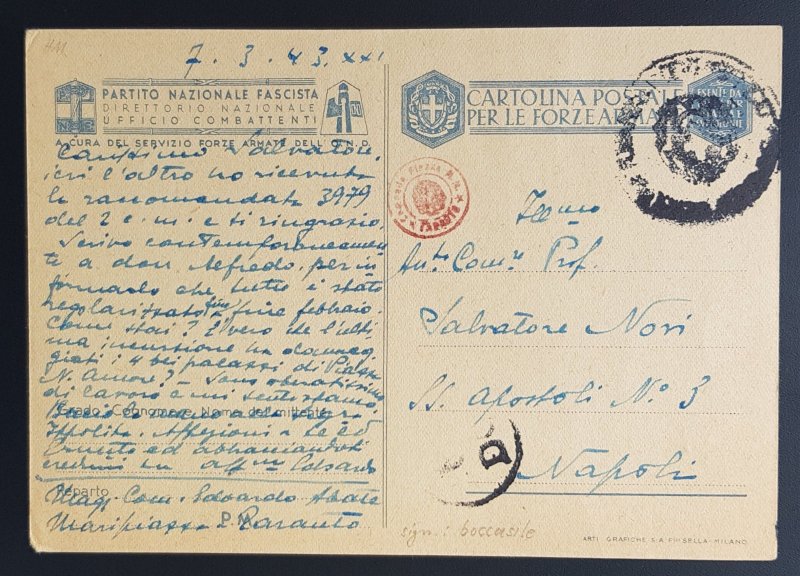 7. 3. 43. XXI
PARTITO NAZIONALE FASCISTA
DIRETTORIO NAZIONALE
UFFICIO COMBATTENTI
A CURA DEL SERVIZIO FORZE ARMATE DELL'O.N.D.
Carissimo Salvatore,
ieri l'altro ho ricevuto
la raccomandata 3979
del 2 c.m. e ti ringrazio.
Scrivo contemporaneamen
te a don Alfredo, per in
formarlo che tutto è stato
regolarizzato fino fine febbraio.
Come stai? È vero che l'ulti
ma incursione ha danneg
giati i 4 bei palazzi di Piazza
N. Amore? - Sono oberatissimo
di lavoro e mi sento stanco.
Grado, Cognome e Nome del mittente
Ippolito. Affezioni a Te ed
Ernesto ed abbracciandoti
credimi tuo aff.mo
Reparto
Magg. Com. Edoardo Abate
Maripiazza Taranto
P. M.
CARTOLINA POSTALE
PER LE FORZE ARMATE
TARANTO
Ill.mo
Prof.
Salvatore Nori
SS. Apostoli N.° 3
Napoli
sign.: boccasile
ARTI GRAFICHE S.A. PIZZELLA - MILANO